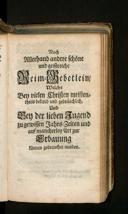 Noch
Allerhand andere schöne
und geistreiche
Reim-Gebetlein/
Welche
Bey vielen Christen meisten-
theils bekant und gebräuchlich,
Und
Bey der lieben Jugend
zu gewissen Jahrs-Zeiten und
auf mancherley Art zur
Erbauung
können gebrauchet werden.